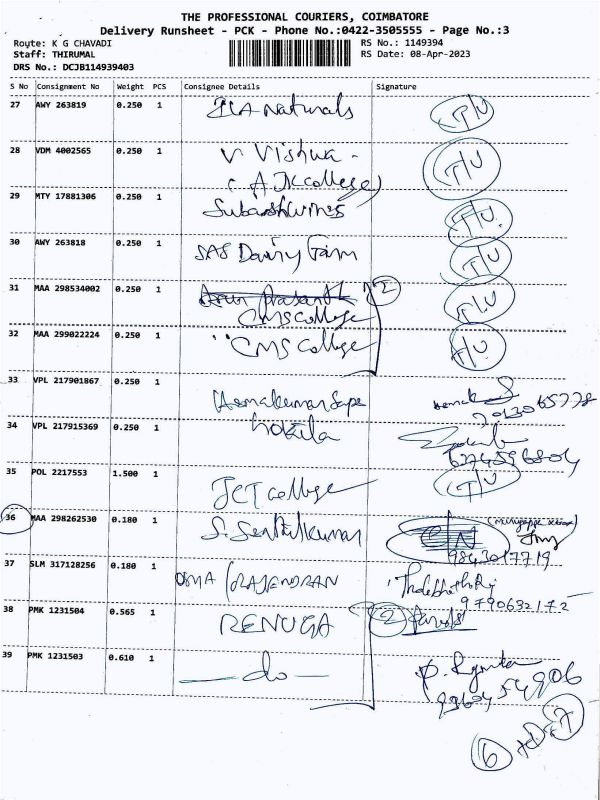 THE PROFESSIONAL COURIERS, COIMBATORE
Delivery Runsheet - PCK - Phone No.:0422-3505555 - Page No.:3
Route: K G CHAVADI RS No.: 1149394
Staff: THIRUMAL RS Date: 08-Apr-2023
DRS No.: DCJB114939403
S No Consignment No Weight PCS Consignee Details Signature
27 AWY 263819 0.250 1 ILA Naturals T/U
28 VDM 4002565 0.250 1 V. Vishwa - T/U
(AJK college)
29 MTY 17881306 0.250 1 T/U
30 AWY 263818 0.250 1 SAS Dairy Farm T/U
31 MAA 298534002 0.250 1 Arun Prasanth 2 T/U
CMS College
32 MAA 299022224 0.250 1 " CMS College T/U
33 VPL 217901867 0.250 1 Hemakumar
34 VPL 217915369 0.250 1 Kokila
35 POL 2217553 1.500 1 JCT college T/U
36 MAA 298262530 0.180 1 S. Senthilkumar
9843017719
37 SLM 317128256 0.180 1 GAJENDRAN
9790632172
38 PMK 1231504 0.565 1 RENUGA 2
39 PMK 1231503 0.610 1 - do -
9360454906
6